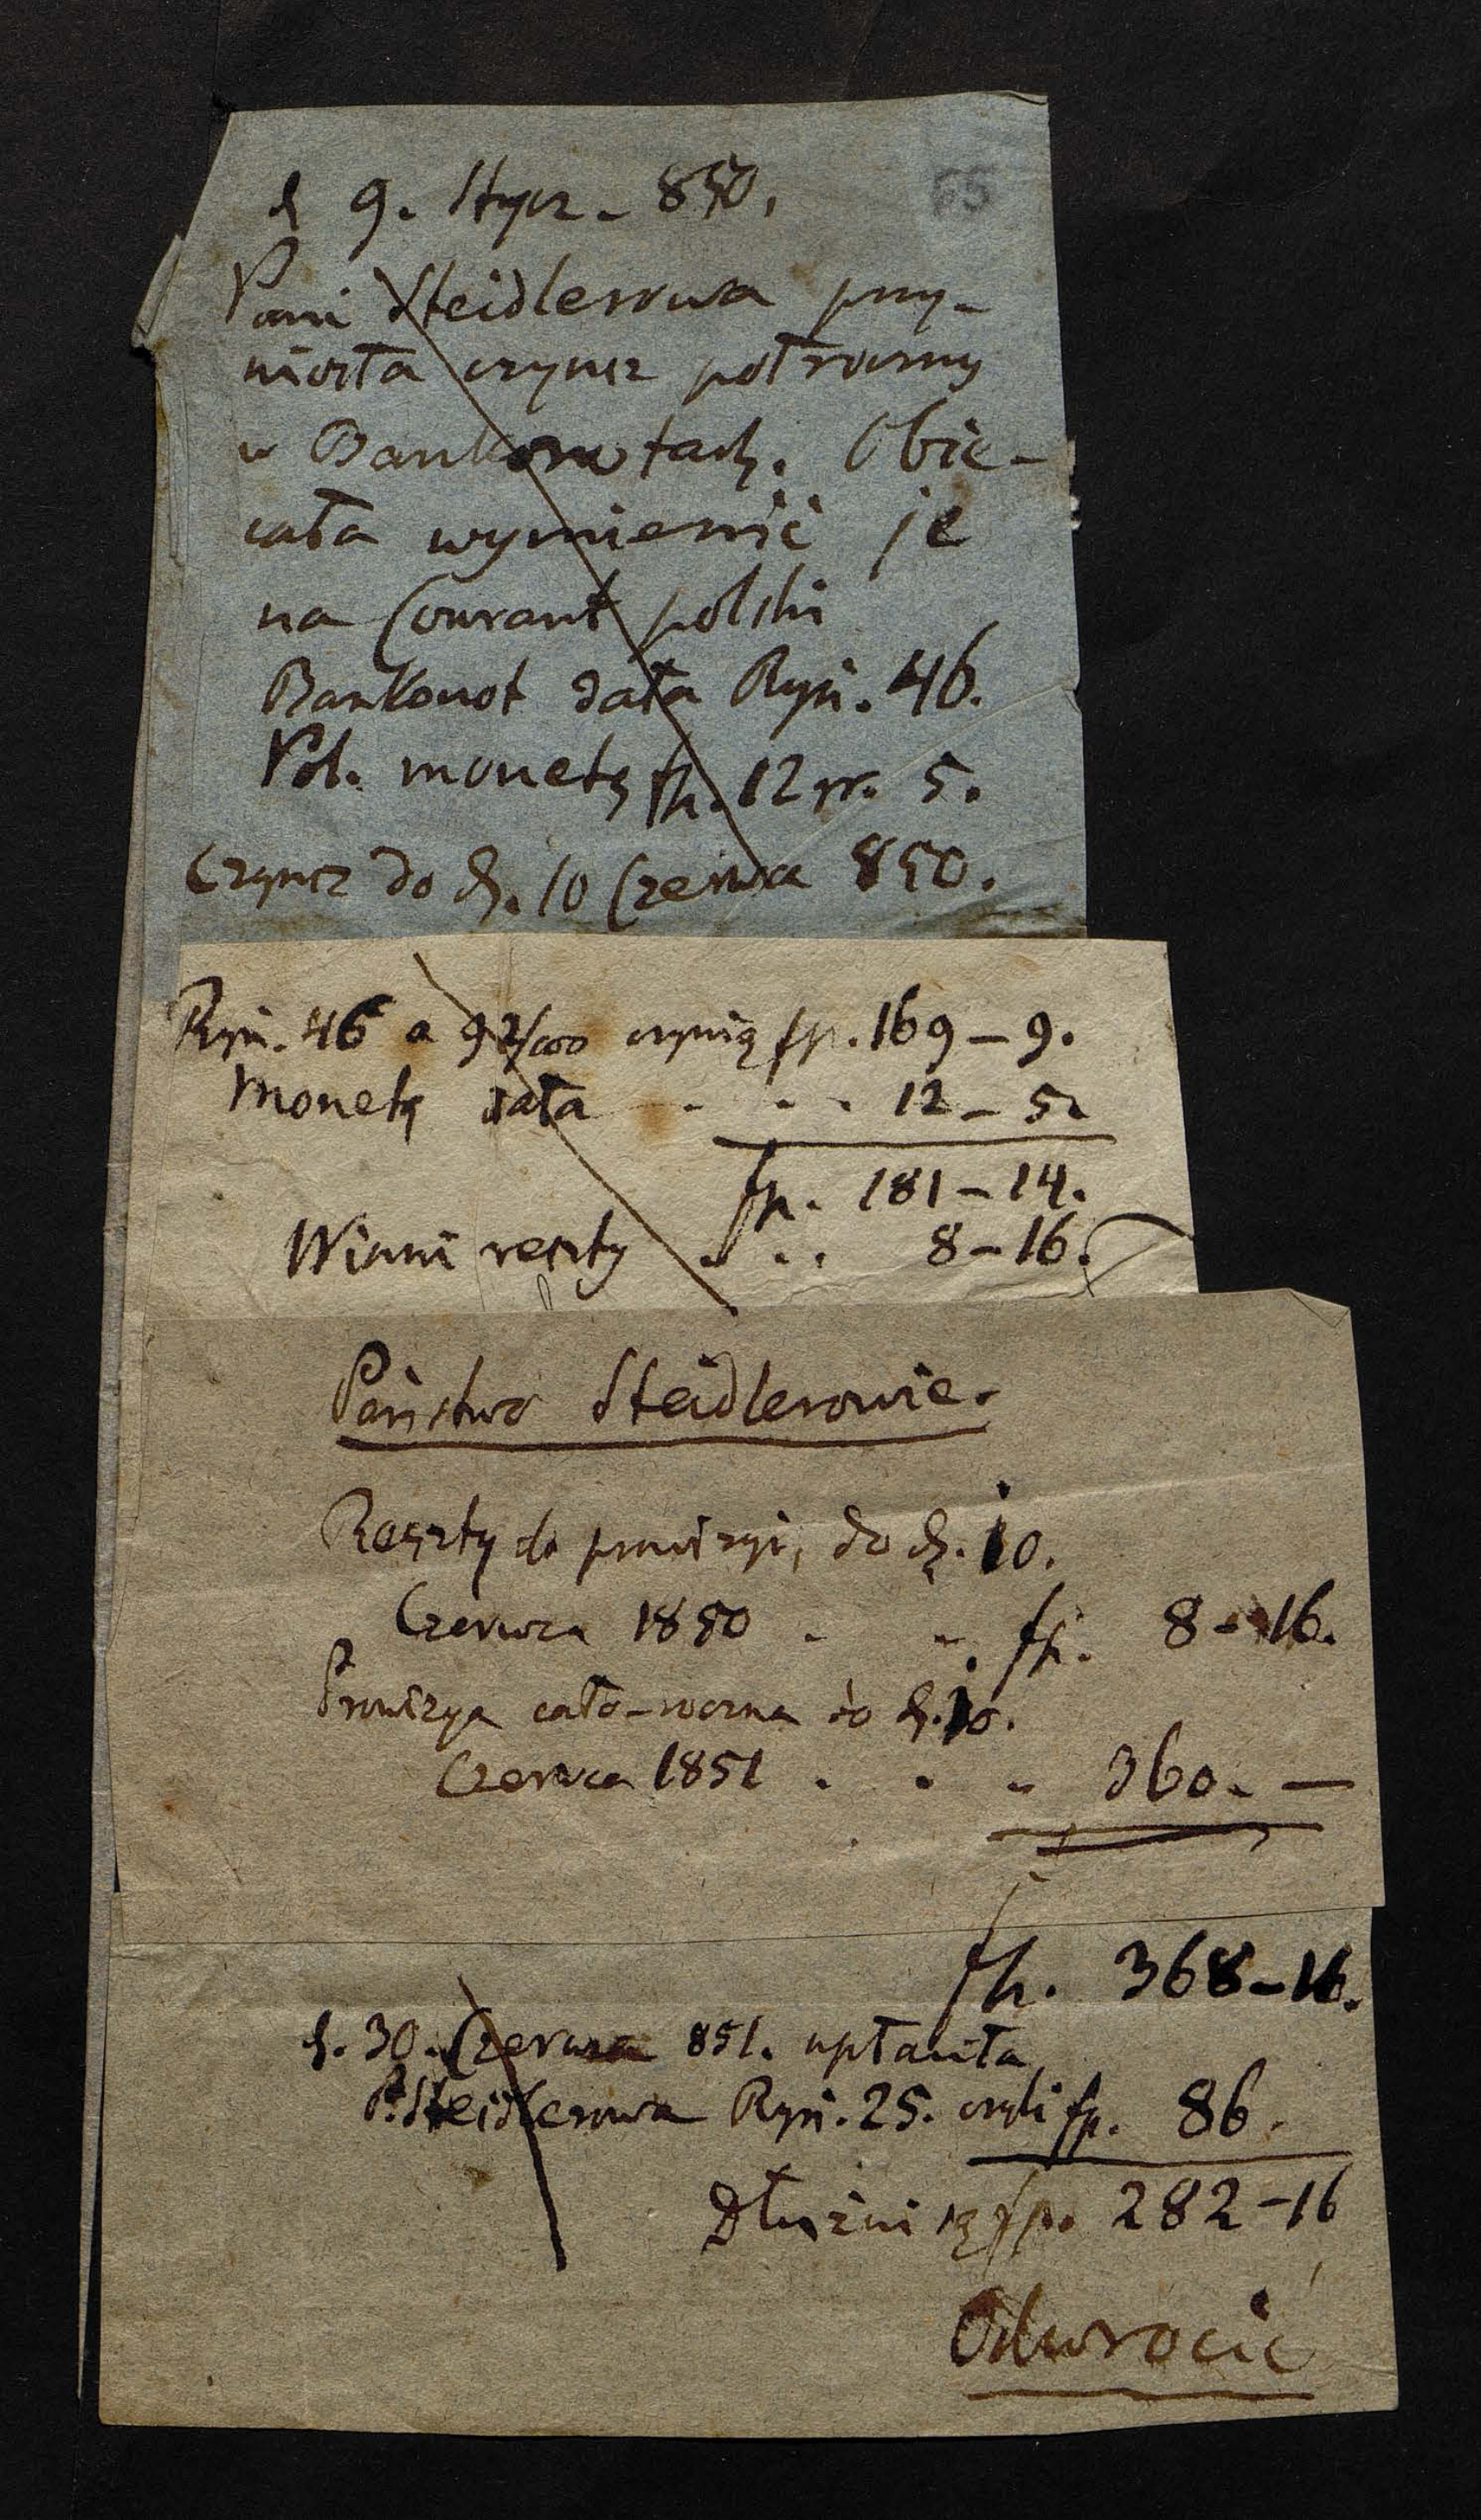 65
d 9. Stycz. 850.
Pani Steidlerowa przy-
niosła czynsz półroczny
w Bankonotach. Obie-
cała wymienić je
na Courant polski
Bankonot dała Ryń. 46.
Pol. monetą fp. 12 gr. 5.
Czynsz do d. 10 Czerwca 850.
Ryń. 46 a 92/100 czynią fp. 169 – 9.
Monetą dała . . . 12 – 5.
fp. 181 – 14.
Winni reszty . . . 8 – 16.
Państwo Steidlerowie.
Reszty do prowizyi, do d. 10.
Czerwca 1850 . . fp. 8 – 16.
Prowizya cało-roczna do d. 10.
Czerwca 1851 . . . 360. —
fp. 368 – 16.
d. 30. Czerwca 851. upłaciła
P. Steidlerowa Ryń. 25. czyli fp. 86.
Dłużni są fp. 282 – 16
Odwrócić